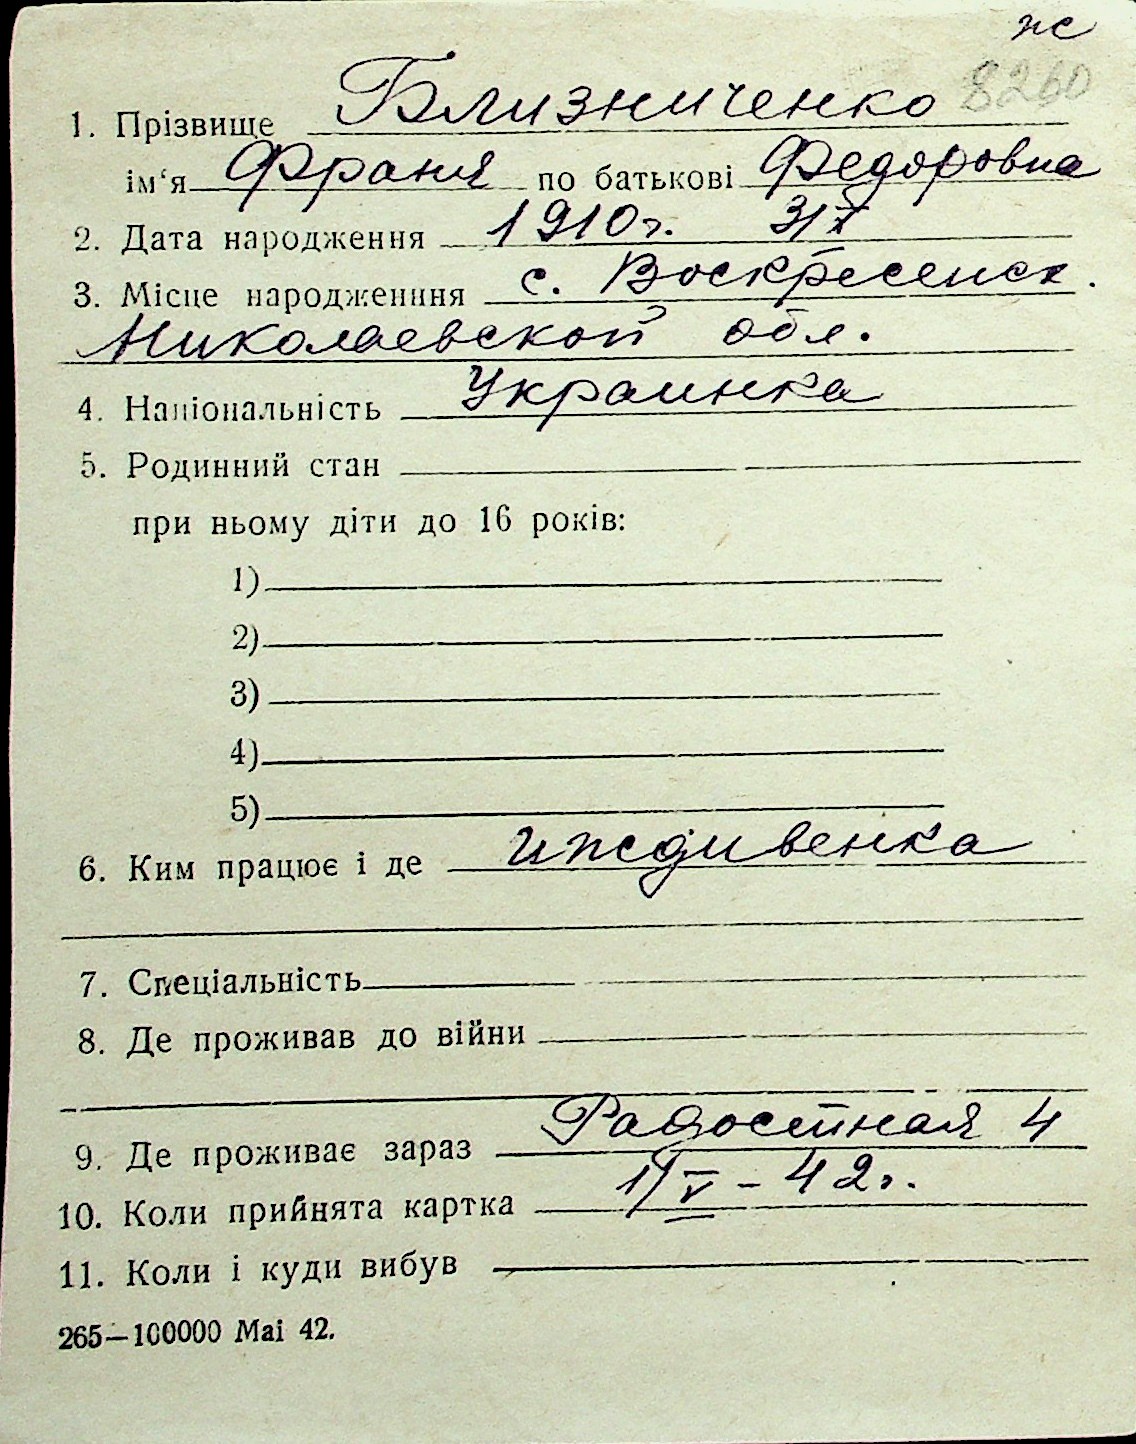 ж
8260
1. Прізвище Близниченко
ім‘я Франя по батькові Федоровна
2. Дата народження 1910г. 3/X
3. Місце народженння с. Воскресенск.
Николаевской обл.
4. Національність Украинка
5. Родинний стан
при ньому діти до 16 років:
1)
2)
3)
4)
5)
6. Ким працює і де иждивенка
7. Спеціальність
8. Де проживав до війни
9. Де проживає зараз Радостная 4
10. Коли прийнята картка 1/V - 42г.
11. Коли і куди вибув
265—100000 Маі 42.